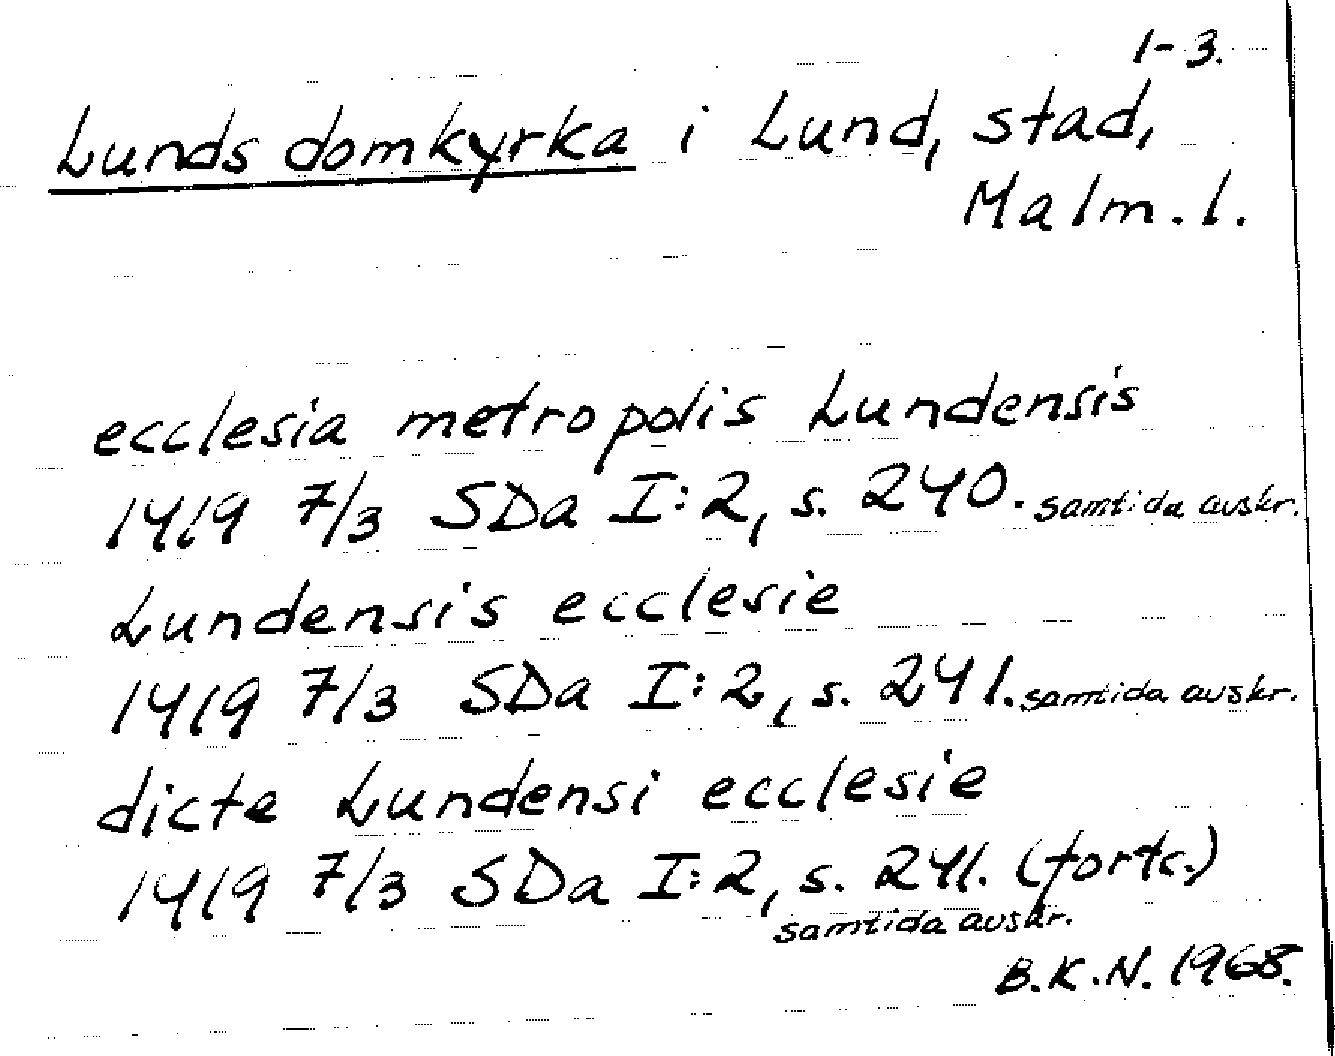 1-3.
Lunds domkyrka i Lund, stad,
Malm. l.
ecclesia metropolis Lundensis
1419 7/3 SDa I:2, s. 240. samtida avskr.
Lundensis ecclesie
1419 7/3 SDa I:2, s. 241. samtida avskr.
dicte Lundensi ecclesie
1419 7/3 SDa I:2, s. 241. (forts.)
samtida avskr.
B.K.N. 1968.